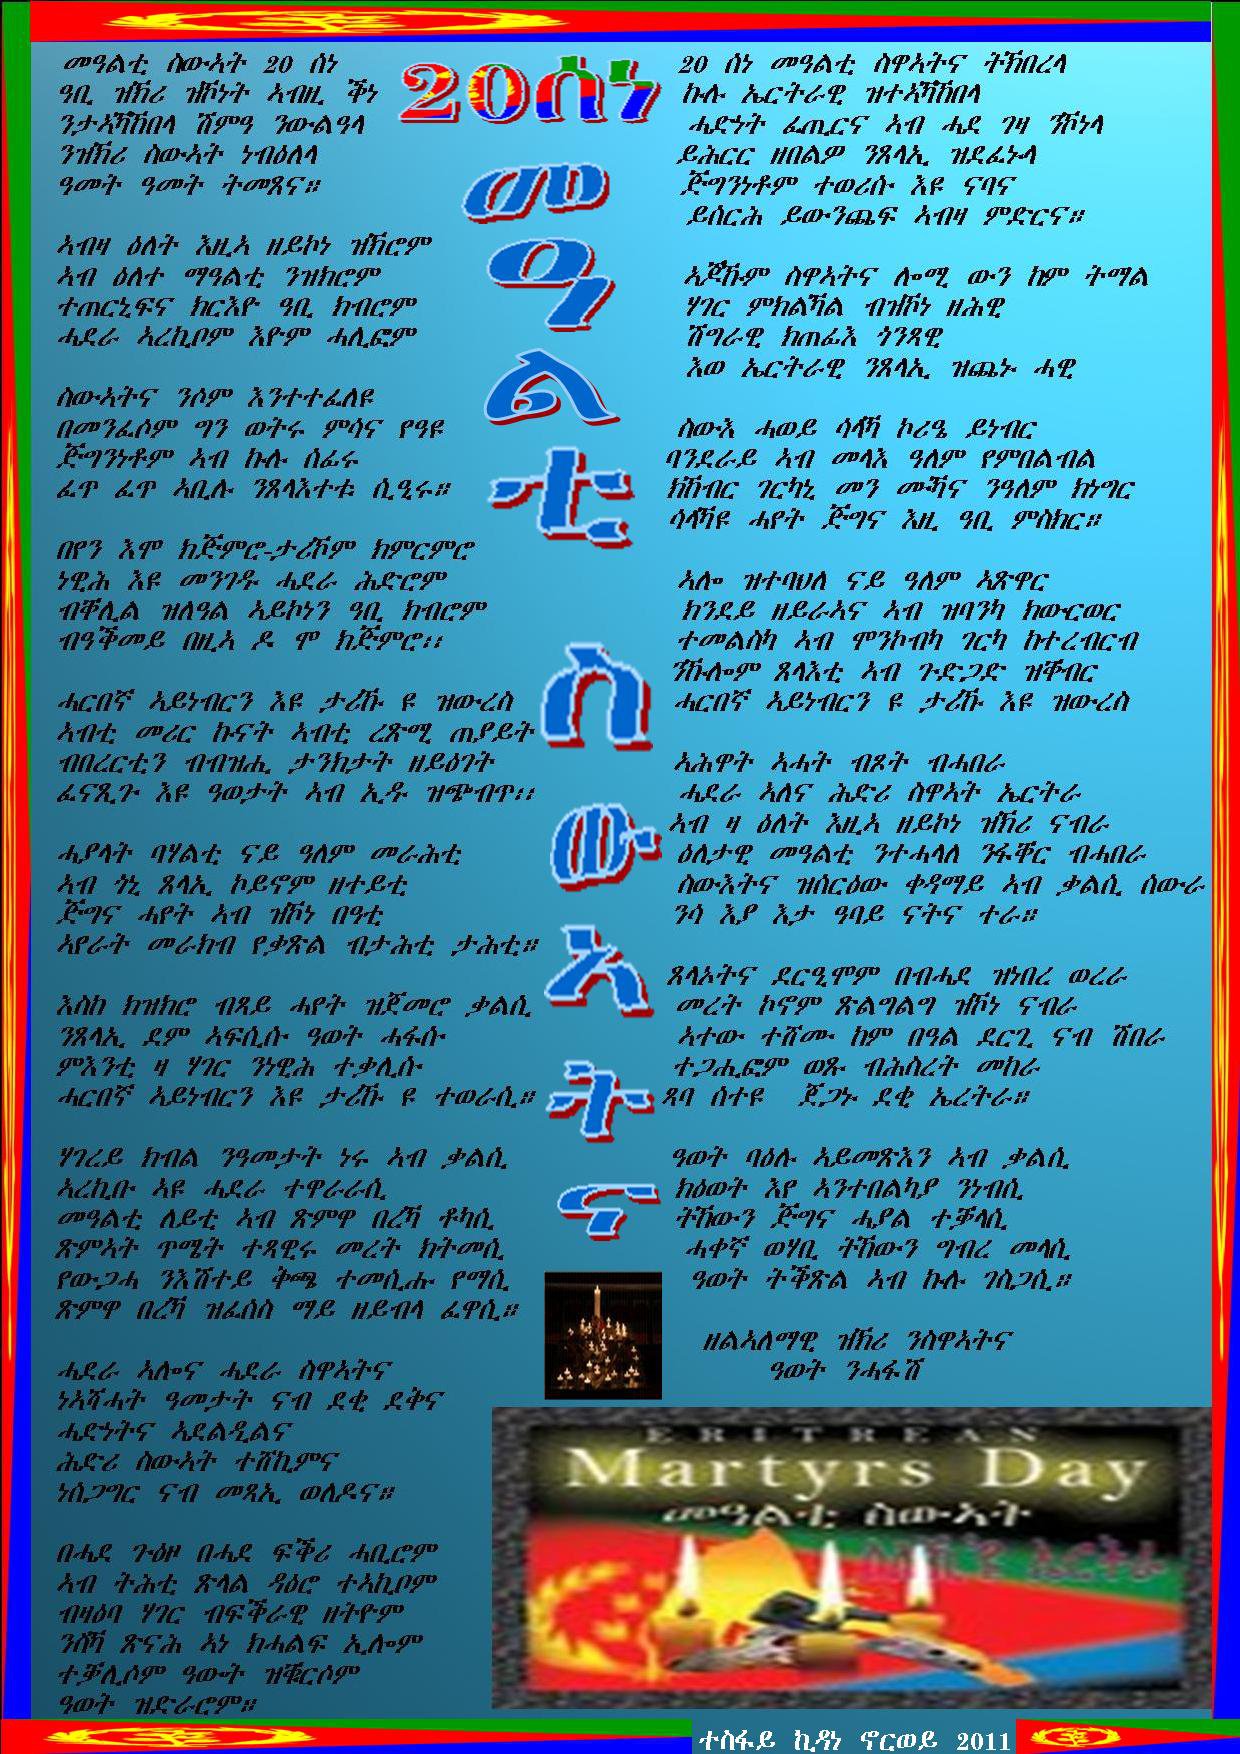 መዓልቲ ስውኣት 20 ሰነ
ዓቢ ዝኽሪ ዝኾነት ኣብዚ ቅነ
ንታኣኻኸበላ ሽምዓ ንውልዓላ
ንዝኽሪ ስውኣት ነብዕለላ
ዓመት ዓመት ትመጸና።
ኣብዛ ዕለት እዚኣ ዘይኮነ ዝኽሮም
ኣብ ዕለተ ማዓልቲ ንዝክሮም
ተጠርኒፍና ክርእዮ ዓቢ ክብሮም
ሓደራ ኣረኪቦም እዮም ሓሊፎም
ስውኣትና ንሶም እንተተፈለዩ
በመንፈሶም ግን ወትሩ ምሳና የዓዩ
ጅግንነቶም ኣብ ኩሉ ሰፊሩ
ፈጥ ፈጥ ኣቢሉ ንጸላእተቱ ሲዒሩ።
በየን እሞ ክጅምሮ-ታሪኾም ክምርምሮ
ነዊሕ እዩ መንገዱ ሓደራ ሕድሮም
ብቐሊል ዝለዓል ኣይኮነን ዓቢ ክብሮም
ብዓቅመይ በዚኣ ዶ ሞ ክጅምሮ፡፡
ሓርበኛ ኣይነብርን እዩ ታሪኹ ዩ ዝውረስ
ኣብቲ መሪር ኩናት ኣብቲ ረጽሚ ጠያይት
ብበረርቲን ብብዝሒ ታንክታት ዘይዕገት
ፈናጺጉ እዩ ዓወታት ኣብ ኢዱ ዝጭብጥ፡፡
ሓያላት ባሃልቲ ናይ ዓለም መራሕቲ
ኣብ ጎኒ ጸላኢ ኮይኖም ዘተይቲ
ጅግና ሓየት ኣብ ዝኾነ በዓቲ
ኣየራት መራክብ የቃጽል ብታሕቲ ታሕቲ።
እስከ ክዝክሮ ብጻይ ሓየት ዝጀመሮ ቃልሲ
ንጸላኢ ደም ኣፍሲሱ ዓወት ሓፋሱ
ምእንቲ ዛ ሃገር ንነዊሕ ተቃሊሱ
ሓርበኛ ኣይነብርን እዩ ታሪኹ ዩ ተወራሲ።
ሃገረይ ክብል ንዓመታት ነሩ ኣብ ቃልሲ
ኣረኪቡ ኣዩ ሓደራ ተዋራራሲ
መዓልቲ ለይቲ ኣብ ጽምዋ በረኻ ቶካሲ
ጽምኣት ጥሜት ተጻዊሩ መረት ክትመሲ
የውጋሓ ንእሽተይ ቅጫ ተመሲሑ የማሲ
ጽምዋ በረኻ ዝፈሰስ ማይ ዘይብላ ፈዋሲ።
ሓደራ ኣሎና ሓደራ ስዋኣትና
ነኣሻሓት ዓመታት ናብ ደቂ ደቅና
ሓድነትና ኣደልዲልና
ሕድሪ ስውኣት ተሸኪምና
ነሰጋግር ናብ መጻኢ ወለዶና።
በሓደ ጉዕዞ በሓደ ፍቅሪ ሓቢሮም
ኣብ ትሕቲ ጽላል ዳዕሮ ተኣኪቦም
ብዛዕባ ሃገር ብፍቅራዊ ዘትዮም
ንስኻ ጽናሕ ኣነ ክሓልፍ ኢሎም
ተቓሊሶም ዓውት ዝቑርሶም
ዓወት ዝድራሮም።
20ሰነ
መዓልቲ ስውኣትና
20 ሰነ መዓልቲ ስዋኣትና ትኽበረላ
ኩሉ ኤርትራዊ ዝተኣኻኸበላ
ሓድነት ፈጢርና ኣብ ሓደ ገዛ ንኾነላ
ይሕርር ዘበልዎ ንጸላኢ ዝደፈኑላ
ጅግንነቶም ተወሪሱ እዩ ናባና
ይሰርሕ ይውንጨፍ ኣብዛ ምድርና።
ኣጆኹም ስዋኣትና ሎሚ ውን ከም ትማል
ሃገር ምክልኻል ብዝኾነ ዘሕዊ
ሽግራዊ ክጠፊእ ጎንጻዊ
እወ ኤርትራዊ ንጸላኢ ዝጨኑ ሓዊ
ስውእ ሓወይ ሳላኻ ኮሪዔ ይነብር
ባንደራይ ኣብ መላእ ዓለም የምበልብል
ክኸብር ገርካኒ መን ሙኻና ንዓለም ክነግር
ሳላኻዩ ሓየት ጅግና እዚ ዓቢ ምስክር።
ኣሎ ዝተባህለ ናይ ዓለም ኣጽዋር
ክንደይ ዘይራኣና ኣብ ዝባንካ ክውርወር
ተመልስካ ኣብ ሞንኮብካ ገርካ ከተረብርብ
ንኹሎም ጸላእቲ ኣብ ጉድጋድ ዝቐብር
ሓርበኛ ኣይነብርን ዩ ታሪኹ እዩ ዝውረስ
ኣሕዋት ኣሓት ብጾት ብሓበራ
ሓደራ ኣለና ሕድሪ ስዋኣት ኤርትራ
ኣብ ዛ ዕለት እዚኣ ዘይኮነ ዝኽሪ ናብራ
ዕለታዊ መዓልቲ ንተሓላለ ንፋቐር ብሓበራ
ስውእትና ዝሰርዕው ቀዳማይ ኣብ ቃልሲ ሰውራ
ንሳ እያ እታ ዓባይ ናትና ተራ።
ጸላኦትና ደርዒሞም በብሓደ ዝነበረ ወረራ
መረት ኮኖም ጽልግልግ ዝኾነ ናብራ
ኣተው ተሸሙ ከም በዓል ደርጊ ናብ ሽበራ
ተጋሒፎም ወጹ ብሕስረት መከራ
ጻባ ሰተዩ ጀጋኑ ደቂ ኤረትራ።
ዓወት ባዕሉ ኣይመጽእን ኣብ ቃልሲ
ክዕወት እየ ኣንተበልካያ ንነብሲ
ትኸውን ጅግና ሓያል ተቓላሲ
ሓቀኛ ወሃቢ ትኸውን ግብረ መላሲ
ዓወት ትቅጽል ኣብ ኩሉ ገስጋሲ።
ዘልኣለማዊ ዝኽሪ ንስዋኣትና
ዓወት ንሓፋሽ
ERITREAN
Martyrs Day
መዓልቲ ስውኣት
ተስፋይ ኪዳነ ኖርወይ 2011